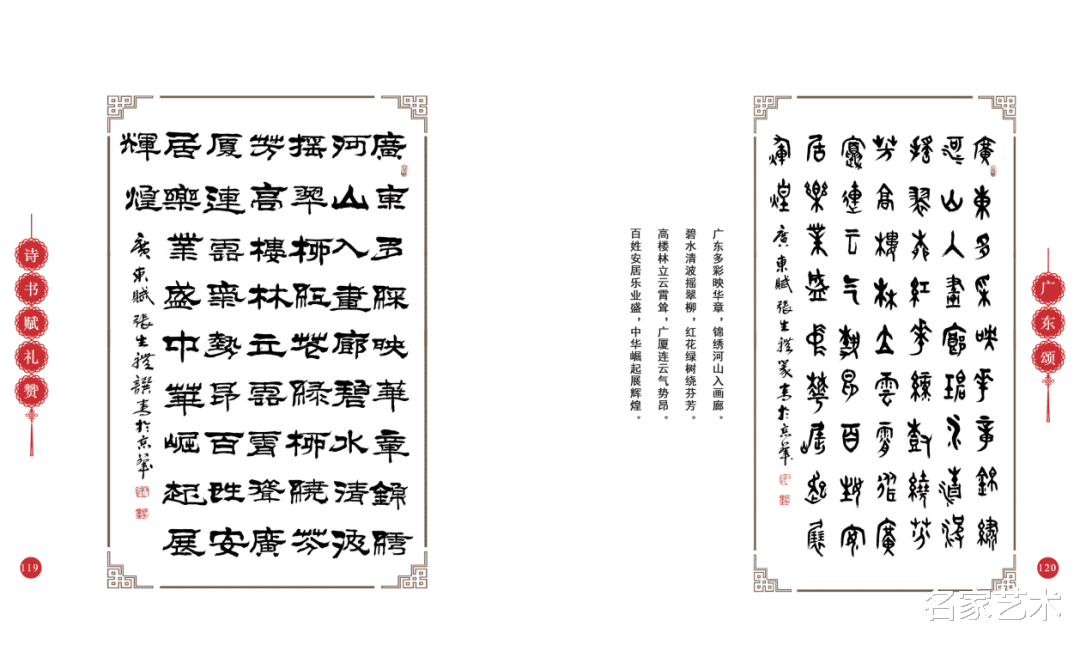 诗书赋礼赞
119
廣東多綵映華章錦繡
河山入畫廊碧水清波
摇翠柳紅花緑柳繞芬
芳高樓林立雲霄聳廣
厦連雲氣勢昂百姓安
居樂業盛中華崛起展
輝煌
廣東賦張生禮撰書於京華
广东多彩映华章，锦绣河山入画廊。
碧水清波摇翠柳，红花绿树绕芬芳。
高楼林立云霄耸，广厦连云气势昂。
百姓安居乐业盛，中华崛起展辉煌。
廣東多采映華章錦繡
河山入畫廊碧水清波
摇翠柳紅華綠樹繞芬
芳高樓林立雲霄聳廣
廈連云气勢昂百姓安
居樂業盛中華崛起展
輝煌
廣東賦張生禮篆書於京華
广东颂
120
名家艺术